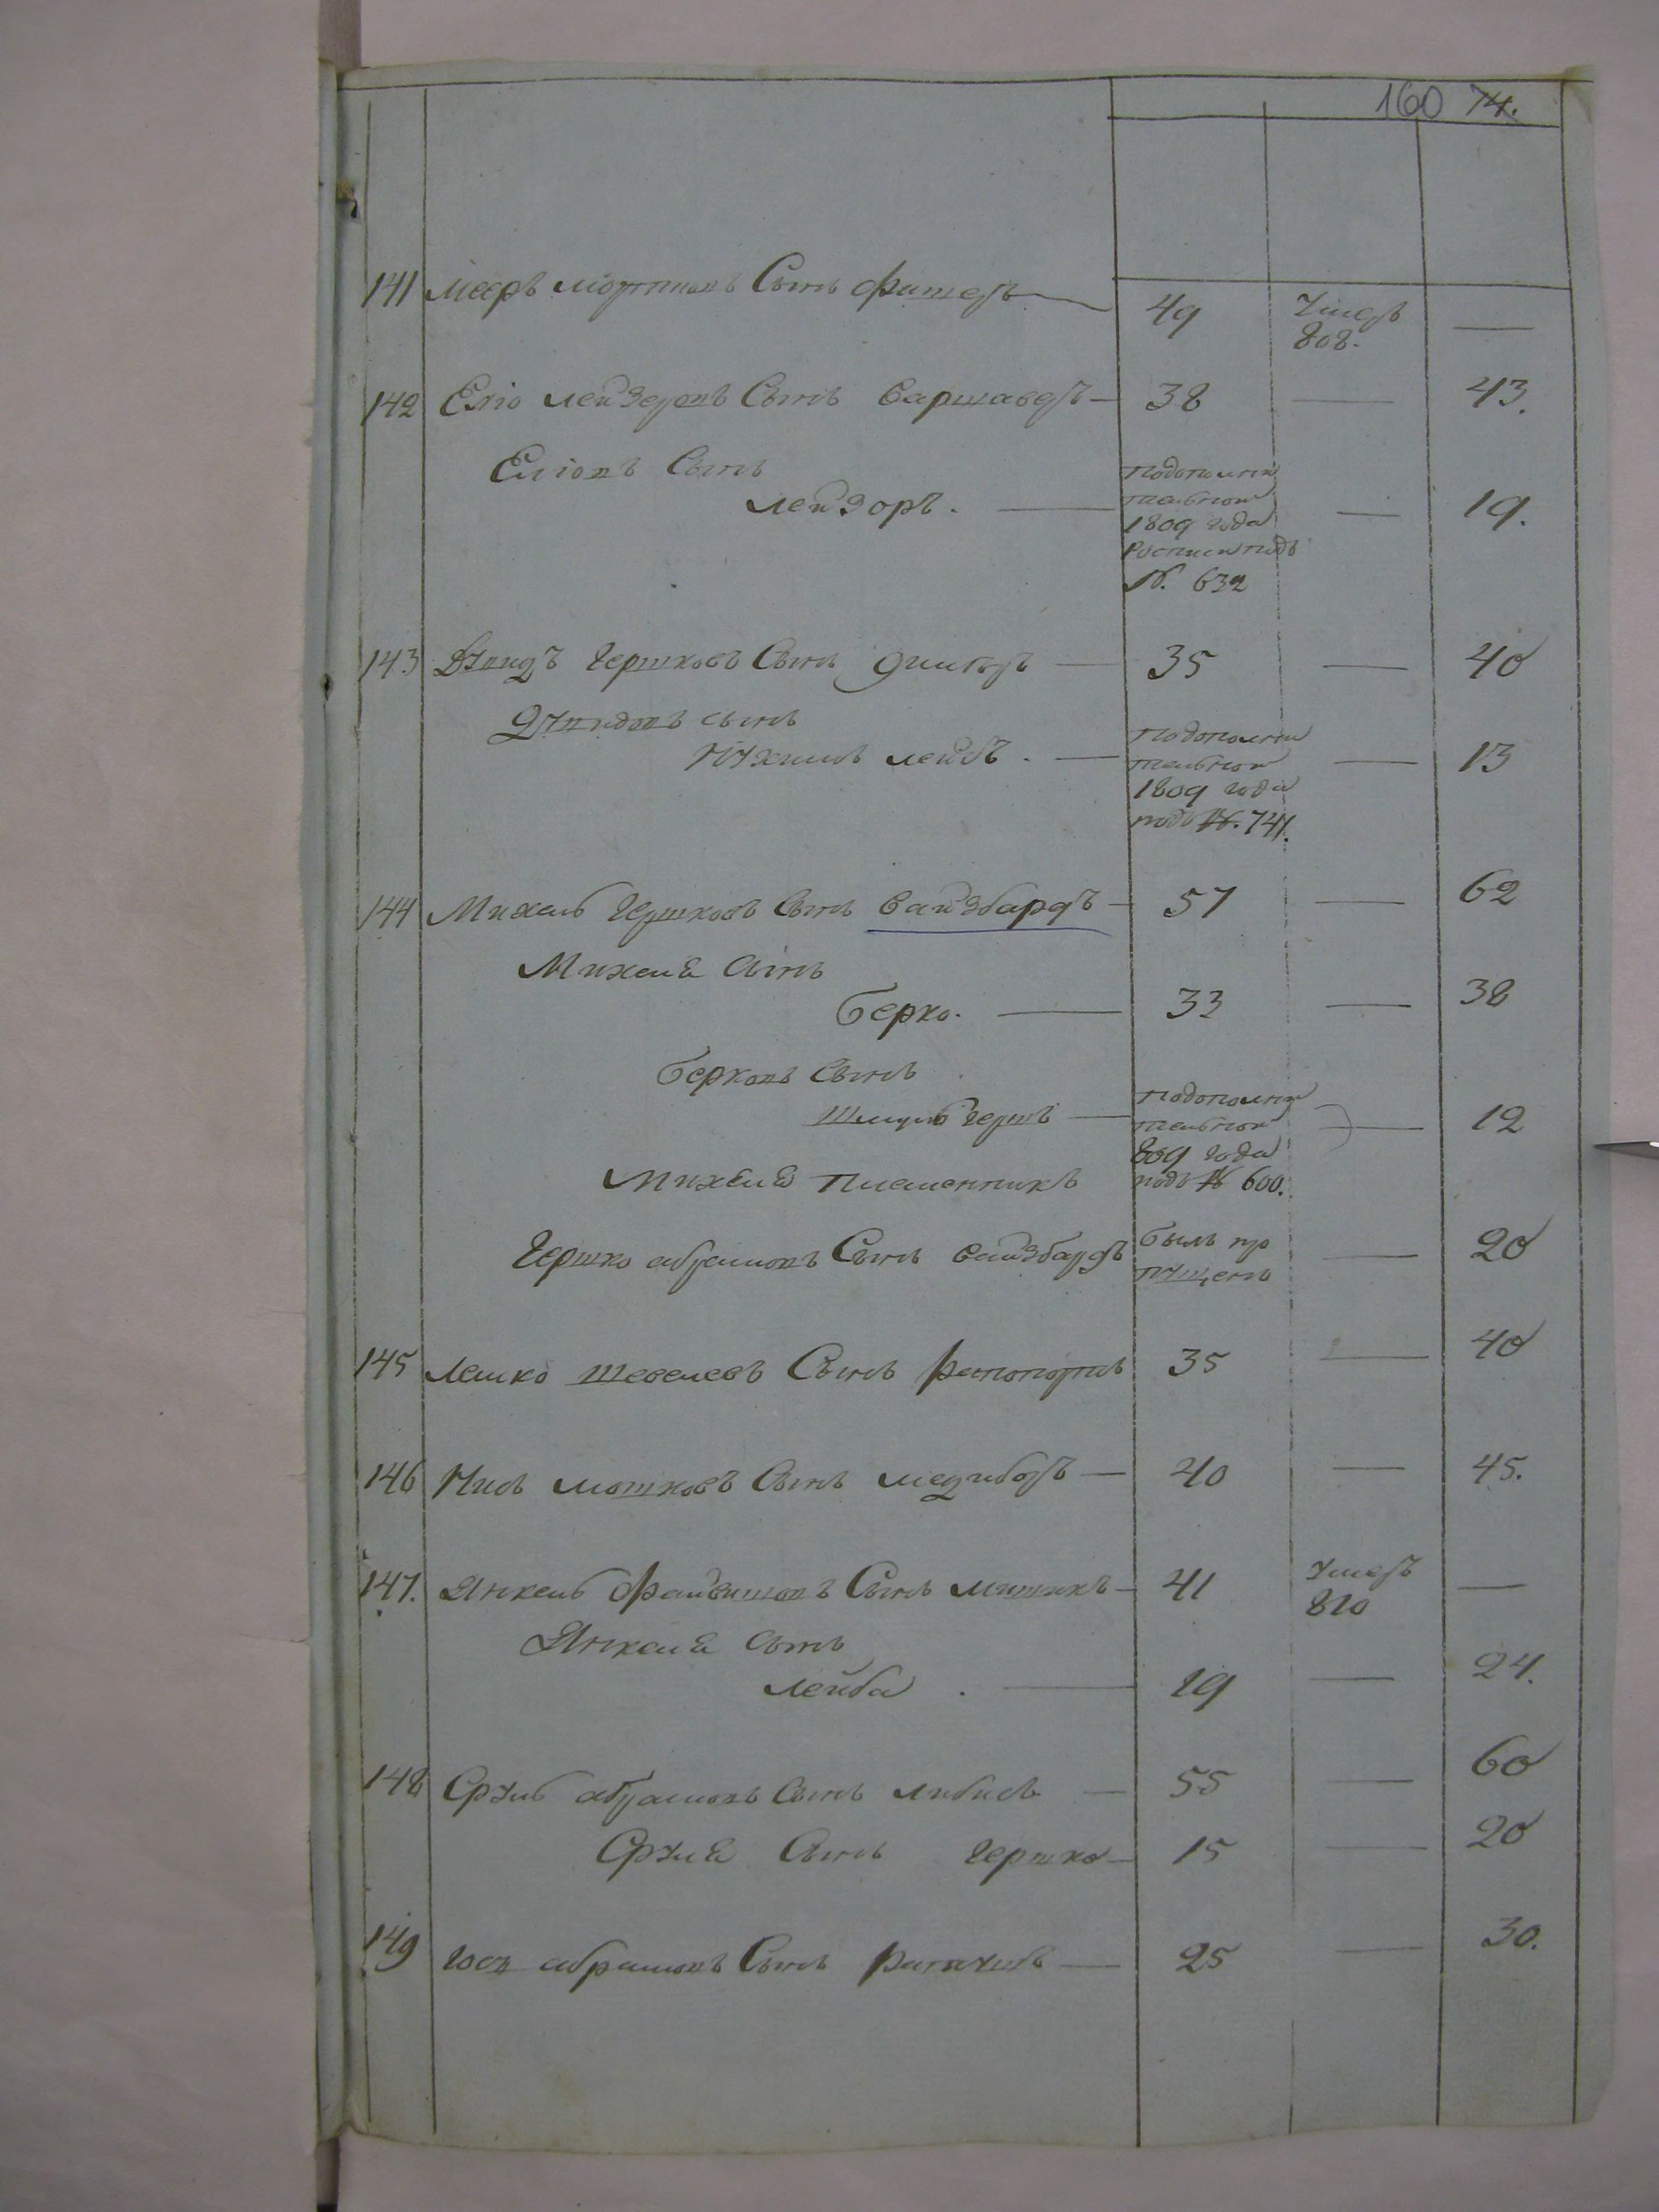 160 74.
141 Мееръ Мортковъ Сынъ Фишеръ 49 Умеръ —
808.
142 Еліо Лейзеровъ Сынъ Варшаверъ — 38 — 43.
Еліовъ Сынъ
Лейзоръ. — подополни
тельной
1809 года
Росписи подъ
№. 632 — 19.
143 Дувидъ Гершковъ Сынъ — 35 — 40
Дувидовъ сынъ
Нухимъ Лейбъ. — подополни
тельной
1809 года
подъ №. 741. — 13
144 Михель Гершковъ Сынъ Вайзбардъ — 57 — 62
Михеля Сынъ
Берко. — 33 — 38
Берковъ Сынъ
Шмуль Гершъ — подополни
тельной
809 года
подъ № 600. — 12
Михеля Племенникъ
Гершко Абрамовъ Сынъ Вайзбардъ былъ про
пущенъ — 20
145 Лемко Шевелевъ Сынъ Рапопортъ 35 — 40
146 Мошковъ Сынъ Медзиборъ — 40 — 45.
147. Янкель Файвишовъ Сынъ Мишикъ — 41 Умеръ —
810
Янкеля Сынъ
Лейба. — 19 — 24.
148 Сруль Абрамовъ Сынъ — 55 — 60
Сруля Сынъ Гершко — 15 — 20
149 Іосп Абрамовъ Сынъ — 25 — 30.